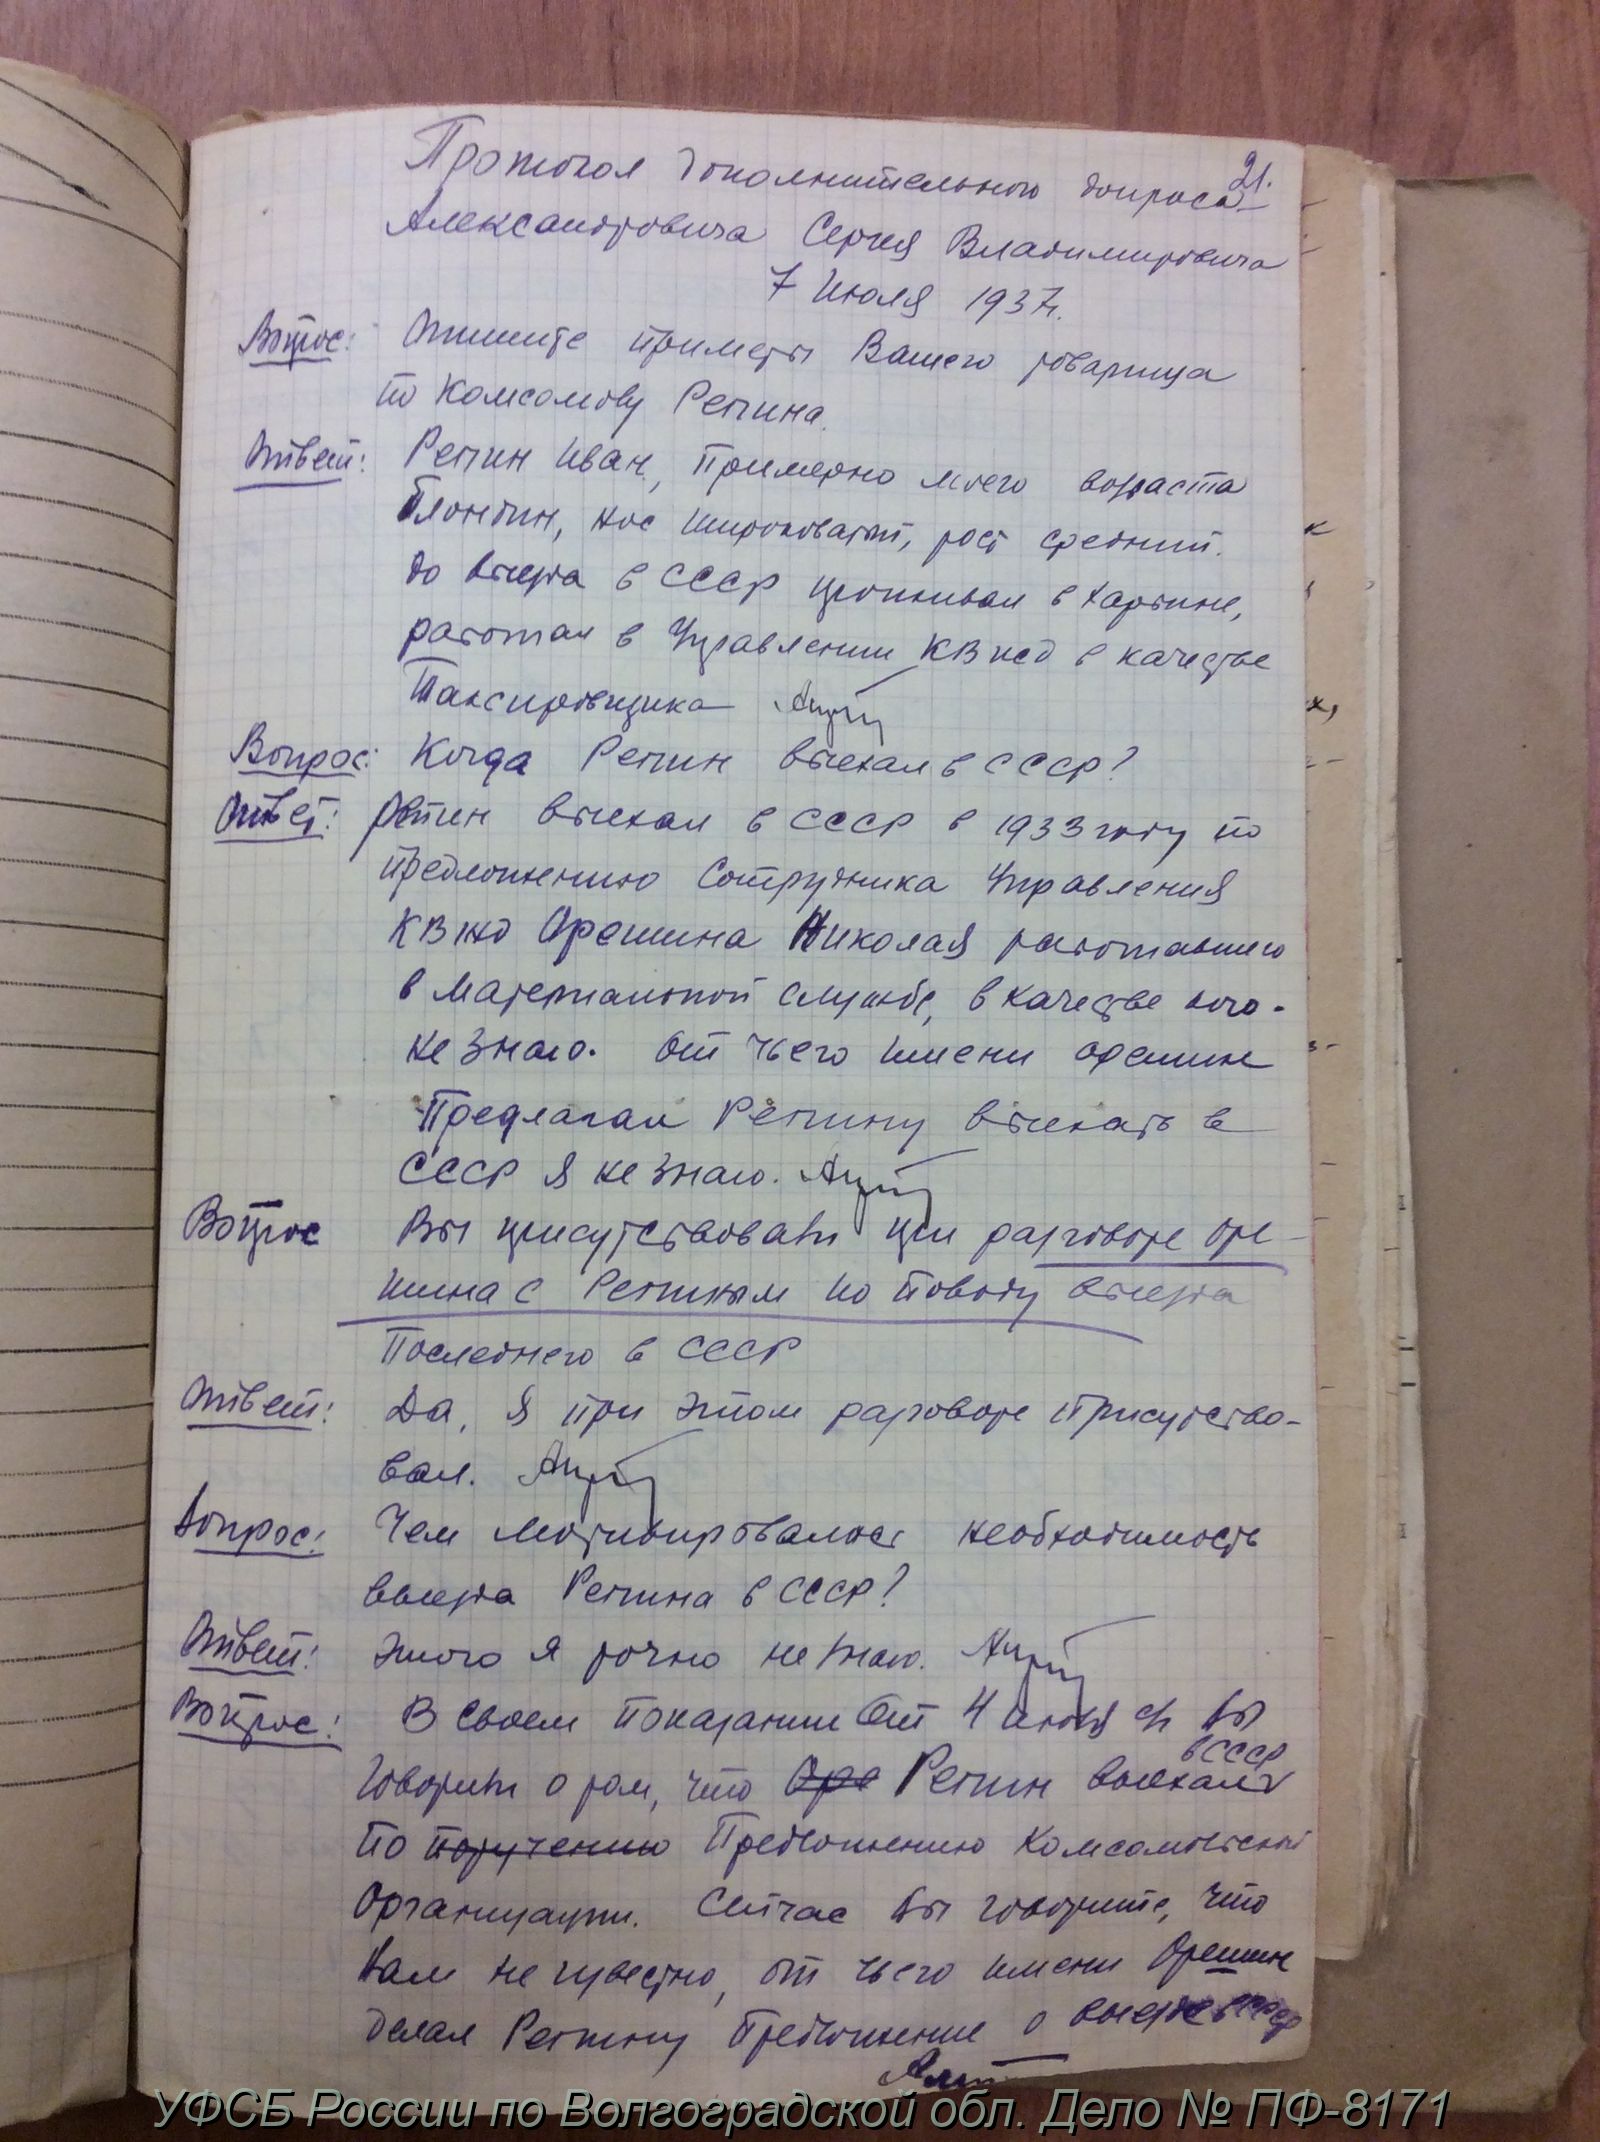 21.
Протокол дополнительного допроса
Александровича Сергея Владимировича
7 Июля 1937г.
Вопрос: Опишите приметы Вашего товарища
по Комсомолу Репина.
Ответ: Репин Иван, примерно моего возраста
блондин, нос широковатый, рост средний.
До выезда в СССР проживал в Харбине,
работал в Управлении КВжд в качестве
Таксировщика
Вопрос: Когда Репин выехал в СССР?
Ответ: Репин выехал в СССР в 1933 году по
предложению Сотрудника Управления
КВжд Орешина Николая работавшего
в Материальной службе, в качестве кого-
не знаю. От чьего имени Орешин
Предлагал Репину выехать в
СССР я не знаю.
Вопрос Вы присутствовали при разговоре Оре-
шина с Репиным по поводу выезда
Последнего в СССР
Ответ: Да, я при этом разговоре присутство-
вал.
Вопрос: Чем мотивировалась необходимость
выезда Репина в СССР?
Ответ: Этого я точно не знаю.
Вопрос: В своем показании от 4 июля с/г Вы
в СССР
говорили о том, что Оре Репин выехал
по поручению Предложению Комсомольской
Организации. Сейчас Вы говорите, что
Вам не известно, от чьего имени Орешин
делал Репину Предложение о выезде в СССР
УФСБ России по Волгоградской обл. Дело № ПФ-8171